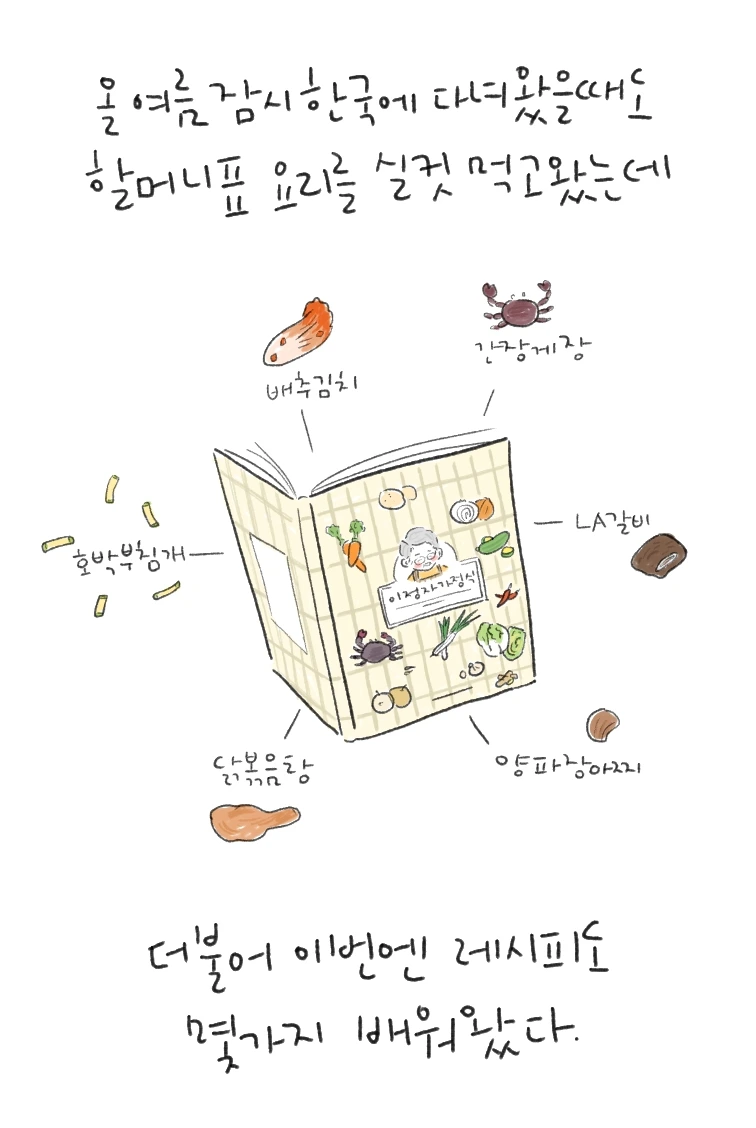 올 여름 잠시 한국에 다녀왔을때도
할머니표 요리를 실컷 먹고왔는데
배추김치
간장게장
호박부침개
LA갈비
이정자가정식
닭볶음탕
양파장아찌
더불어 이번엔 레시피도
몇가지 배워왔다.